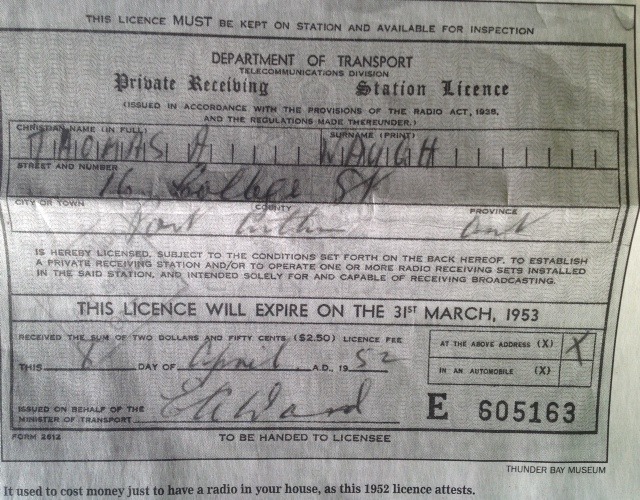 THIS LICENCE MUST BE KEPT ON STATION AND AVAILABLE FOR INSPECTION
DEPARTMENT OF TRANSPORT
TELECOMMUNICATIONS DIVISION
Private Receiving Station Licence
(ISSUED IN ACCORDANCE WITH THE PROVISIONS OF THE RADIO ACT, 1938,
AND THE REGULATIONS MADE THEREUNDER.)
CHRISTIAN NAME (IN FULL) SURNAME (PRINT)
THOMAS A WAUGH
STREET AND NUMBER
16 College St
CITY OR TOWN COUNTY PROVINCE
Port Arthur Ont
IS HEREBY LICENSED, SUBJECT TO THE CONDITIONS SET FORTH ON THE BACK HEREOF, TO ESTABLISH
A PRIVATE RECEIVING STATION AND/OR TO OPERATE ONE OR MORE RADIO RECEIVING SETS INSTALLED
IN THE SAID STATION, AND INTENDED SOLELY FOR AND CAPABLE OF RECEIVING BROADCASTING.
THIS LICENCE WILL EXPIRE ON THE 31ST MARCH, 1953
RECEIVED THE SUM OF TWO DOLLARS AND FIFTY CENTS ($2.50) LICENCE FEE
AT THE ABOVE ADDRESS (X) X
THIS DAY OF April A.D., 1952
IN AN AUTOMOBILE (X)
ISSUED ON BEHALF OF THE
MINISTER OF TRANSPORT
E 605163
FORM 2612 TO BE HANDED TO LICENSEE
THUNDER BAY MUSEUM
It used to cost money just to have a radio in your house, as this 1952 licence attests.